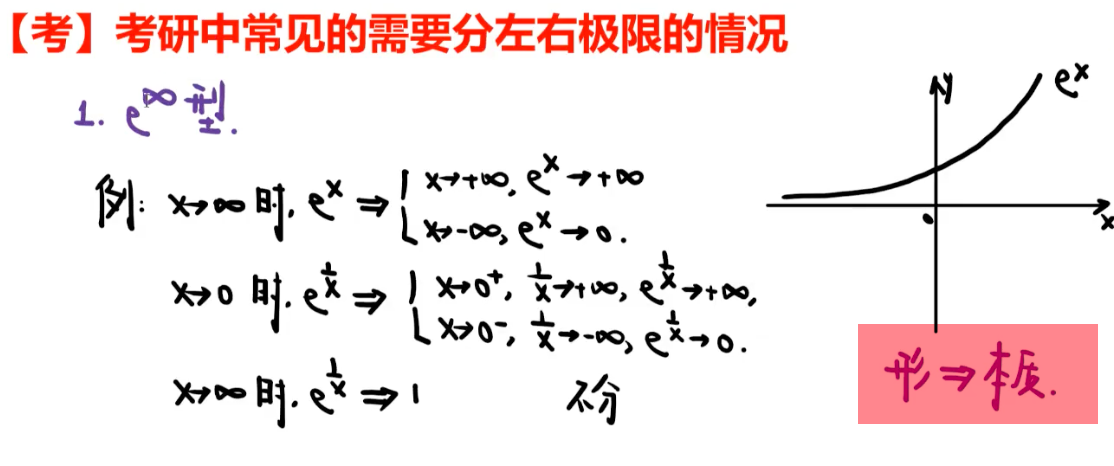 【考】考研中常见的需要分左右极限的情况
1. e^∞ 型.
例: x→∞ 时, e^x ⇒ { x→+∞, e^x→+∞
x→-∞, e^x→0.
x→0 时, e^(1/x) ⇒ { x→0⁺, 1/x→+∞, e^(1/x)→+∞,
x→0⁻, 1/x→-∞, e^(1/x)→0.
x→∞ 时, e^(1/x) ⇒ 1 不分
y
e^x
0
x
形⇒本质.